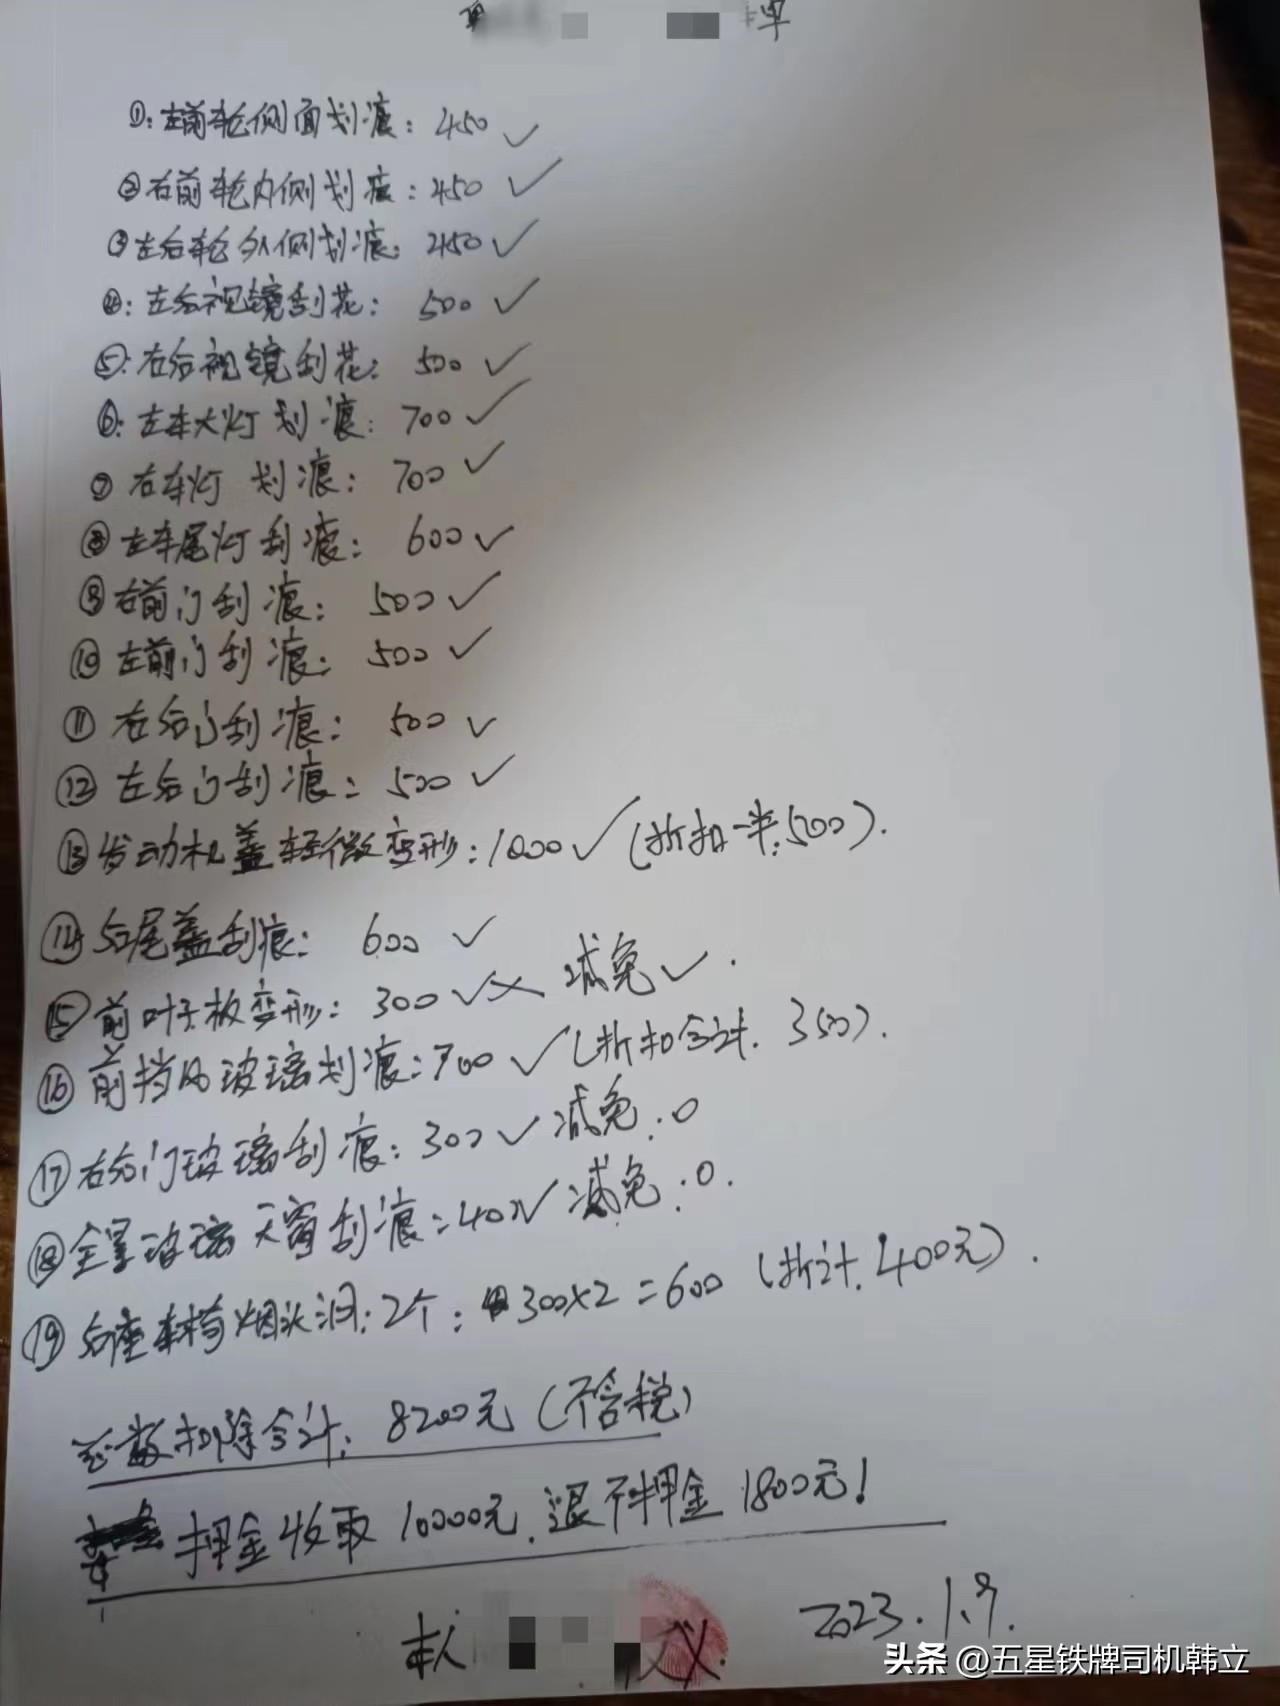 单
①：左前轮侧面划痕：450✓
②右前轮内侧划痕：450✓
③左后轮外侧划痕：450✓
④：左后视镜刮花：500✓
⑤：右后视镜刮花：500✓
⑥：左车大灯划痕：700✓
⑦右车灯划痕：700✓
⑧左车尾灯刮痕：600✓
⑨右前门刮痕：500✓
⑩左前门刮痕：500✓
⑪右后门刮痕：500✓
⑫左后门刮痕：500✓
⑬发动机盖轻微变形：1000✓(折扣一半.500).
⑭后尾盖刮痕：600✓
⑮前叶子板变形：300✓✗减免✓.
⑯前挡风玻璃划痕：700✓(折扣合计.350).
⑰右后门玻璃刮痕：300✓减免：0
⑱全景玻璃天窗刮痕：400✓减免：0.
⑲后座车椅烟头洞：2个：300×2=600(折计.400元).
总数扣除合计：8200元(不含税)
押金收取10000元.退下押金1800元!
本人
2023.1.9.
头条@五星铁牌司机韩立